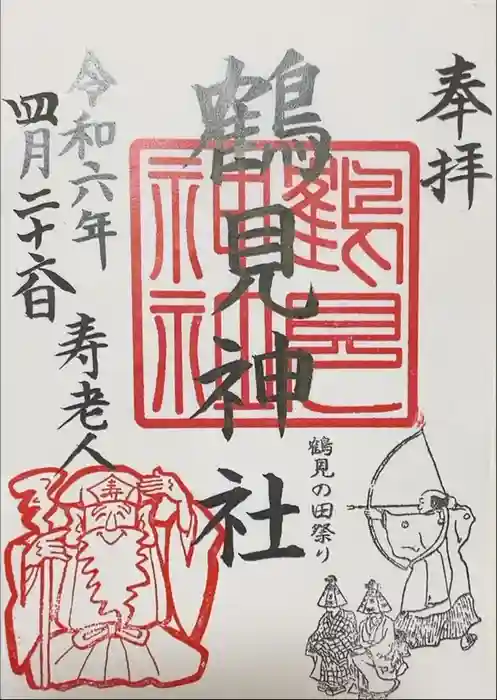 奉拝
鶴見神社
鶴見
神社
鶴見の田祭り
令和六年
四月二十六日
寿老人
寿